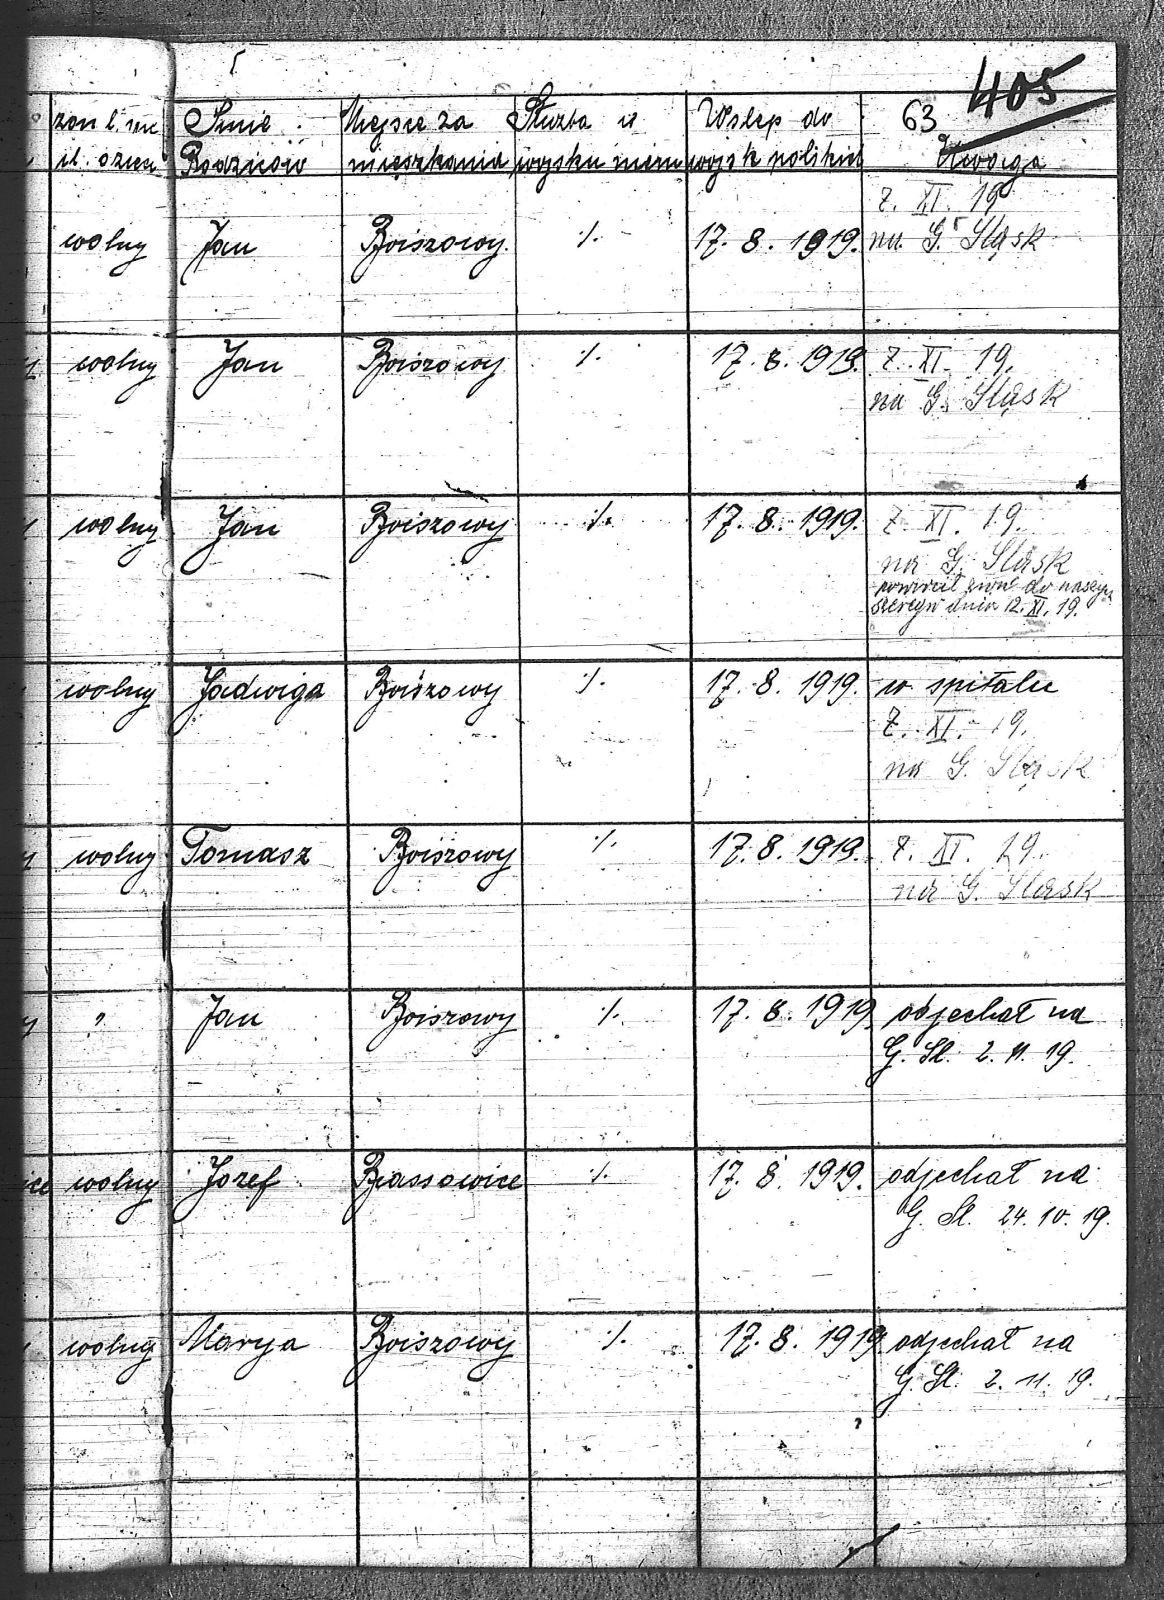 405
63
żon l. nie
il. dzieci
Imie
Rodziców
Miejsce za
mieszkania
Służba w
wojsku niem
Wstęp do
wojsk polskich
Uwaga
wolny Jan Boiszowy. ·/. 17. 8. 1919. 7. XI. 19
na G. Śląsk
wolny Jan Boiszowy ·/. 17. 8. 1919. 7. XI. 19.
na G. Śląsk
wolny Jan Boiszowy ·/. 17. 8. 1919. 7. XI. 19.
na G. Śląsk
powrócił znów do naszych
szeregów dnia 12. XI. 19.
wolny Jadwiga Boiszowy ·/. 17. 8. 1919. w spitalu
7. XI. 19.
na G. Śląsk
wolny Tomasz Boiszowy ·/. 17. 8. 1919. 7. XI. 19.
na G. Śląsk
" Jan Boiszowy ·/. 17. 8. 1919. odjechał na
G. Sl. 2. 11. 19.
ice wolny Jozef Bassowice ·/. 17. 8. 1919. odjechał na
G. Sl. 24. 10. 19.
wolny Marya Boiszowy ·/. 17. 8. 1919 odjechał na
G. Sl. 2. 11. 19.